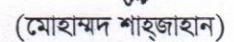 (মোহাম্মদ শাহ্জাহান)